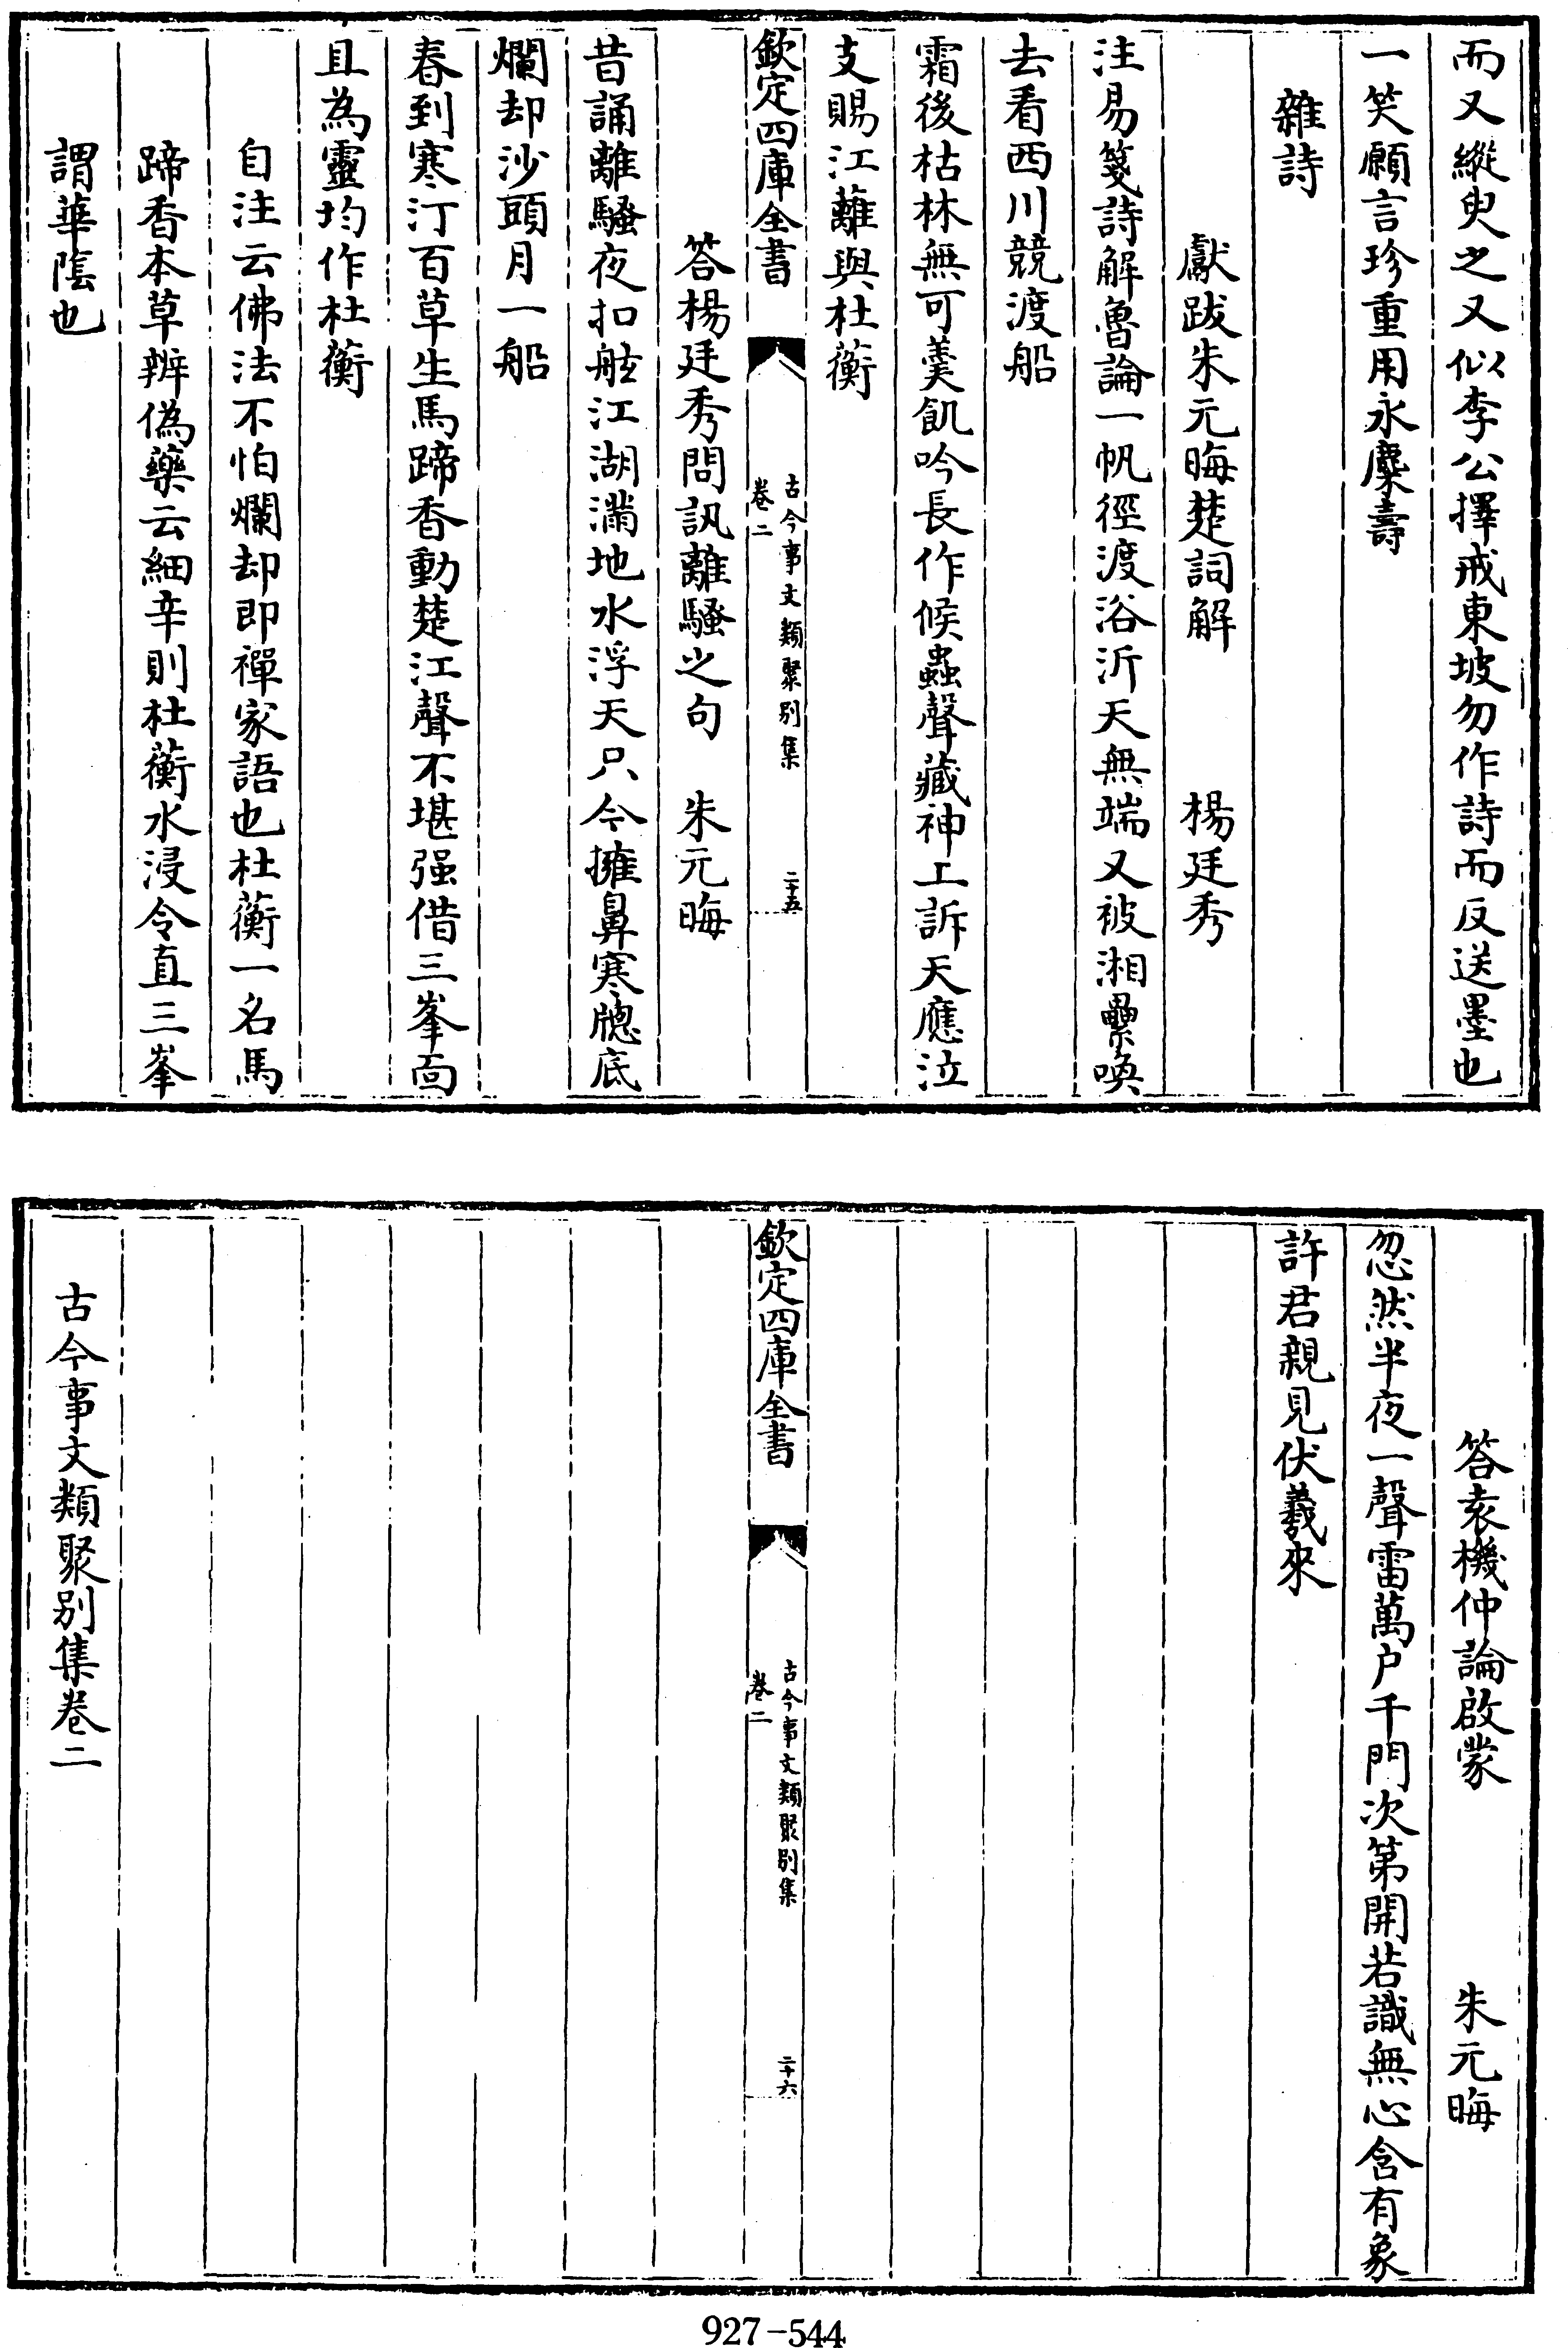 而又縱臾之又似李公擇戒東坡勿作詩而反送墨也
一笑願言珍重用永麋壽
雜詩
獻跋朱元晦楚詞解　楊廷秀
注易箋詩解魯論一帆徑渡浴沂天無端又被湘纍喚
去看西川競渡船
霜後枯林無可羹飢吟長作候蟲聲藏神上訴天應泣
支賜江蘺與杜蘅
欽定四庫全書
古今事文類聚別集
卷二
二十五
答楊廷秀問訊離騷之句　朱元晦
昔誦離騷夜扣舷江湖滿地水浮天只今擁鼻寒牕底
爛却沙頭月一船
春到寒汀百草生馬蹄香動楚江聲不堪强借三峯面
且為靈均作杜蘅
自注云佛法不怕爛却即禪家語也杜蘅一名馬
蹄香本草辨偽藥云細辛則杜蘅水浸令直三峯
謂華陰也
答袁機仲論啟蒙　朱元晦
忽然半夜一聲雷萬户千門次第開若識無心含有象
許君親見伏羲來
欽定四庫全書
古今事文類聚別集
卷二
二十六
古今事文類聚别集卷二
927-544